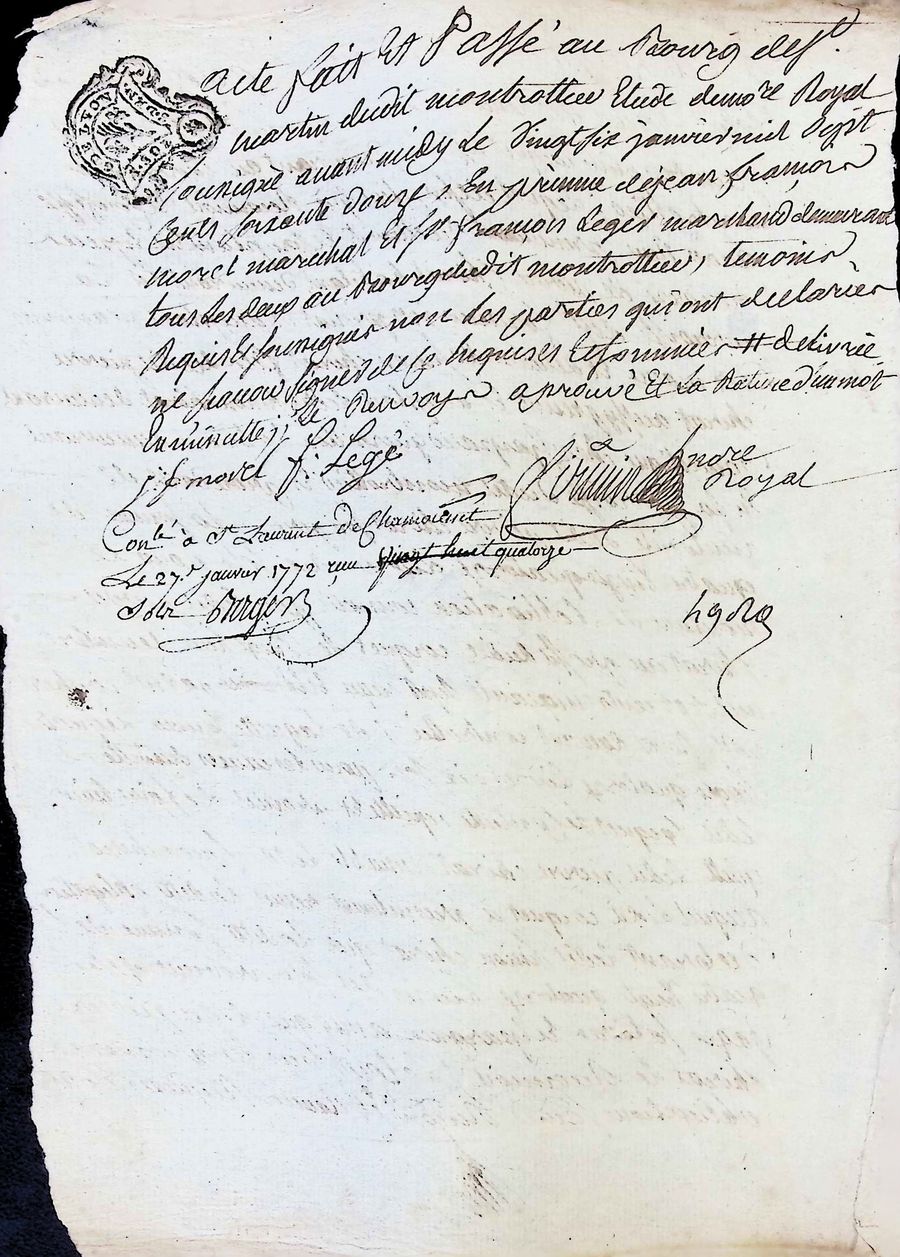 acte fait Et Passé au Bourg de St
martin dudit montrottier Etude du nore Royal
sousigné avant midy le Vingt six janvier mil sept
Cents soixante douze, En présence de jean françois
morel marechal Et sr françois Leger marchand demeurant
tous les deux au Bourg dudit montrottier, temoins
Requis et sousignés non les parties qui ont declarées
ne savoir signer de ce Enquises Et sommées # delivrée
En minutte; le Renvoy aprouvé Et La Rature d'un mot
j f morel f. Legé
nore
Royal
Conlé à St Laurent De Chamousset
Le 27e janvier 1772 reçu vingt huit quatorze
sols Barger